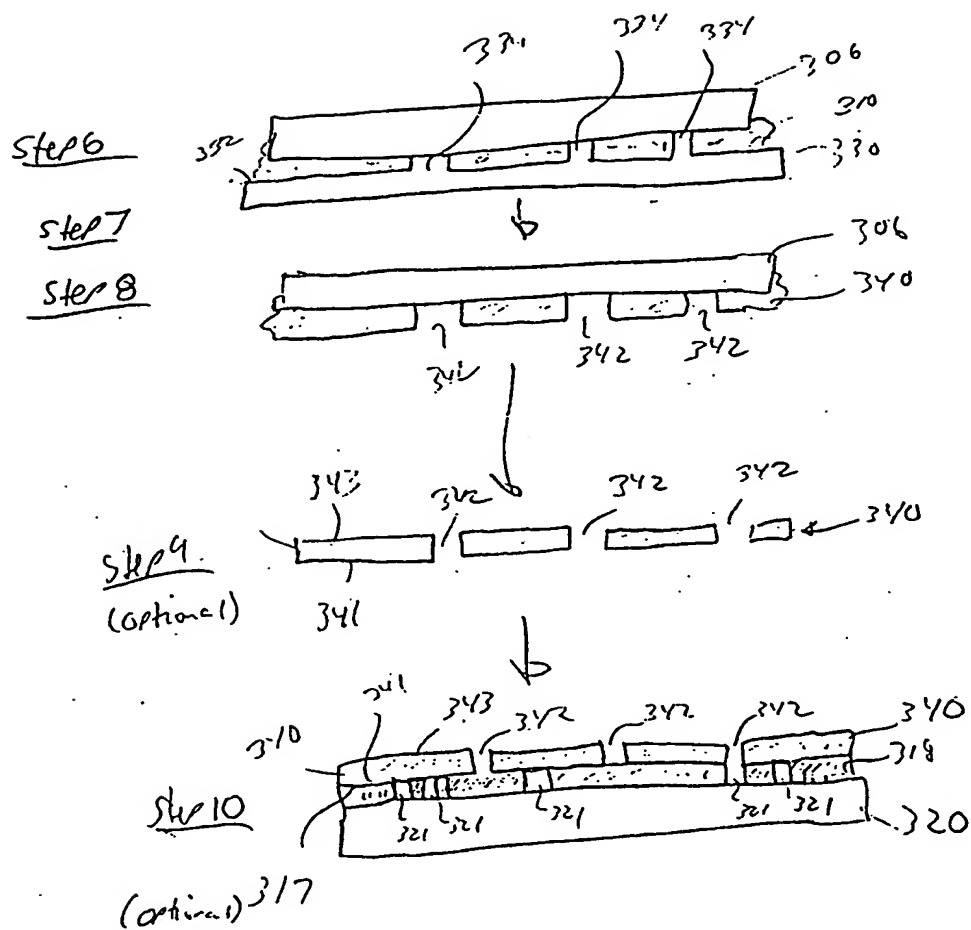 334 334
306
Step 6
332
310
330
Step 7
Step 8
306
340
342 342
343
342 342 342
340
Step 9
(optional)
341
341
343
342 342 342
340
318
Step 10
321 321 321 321 321
320
(optional) 317